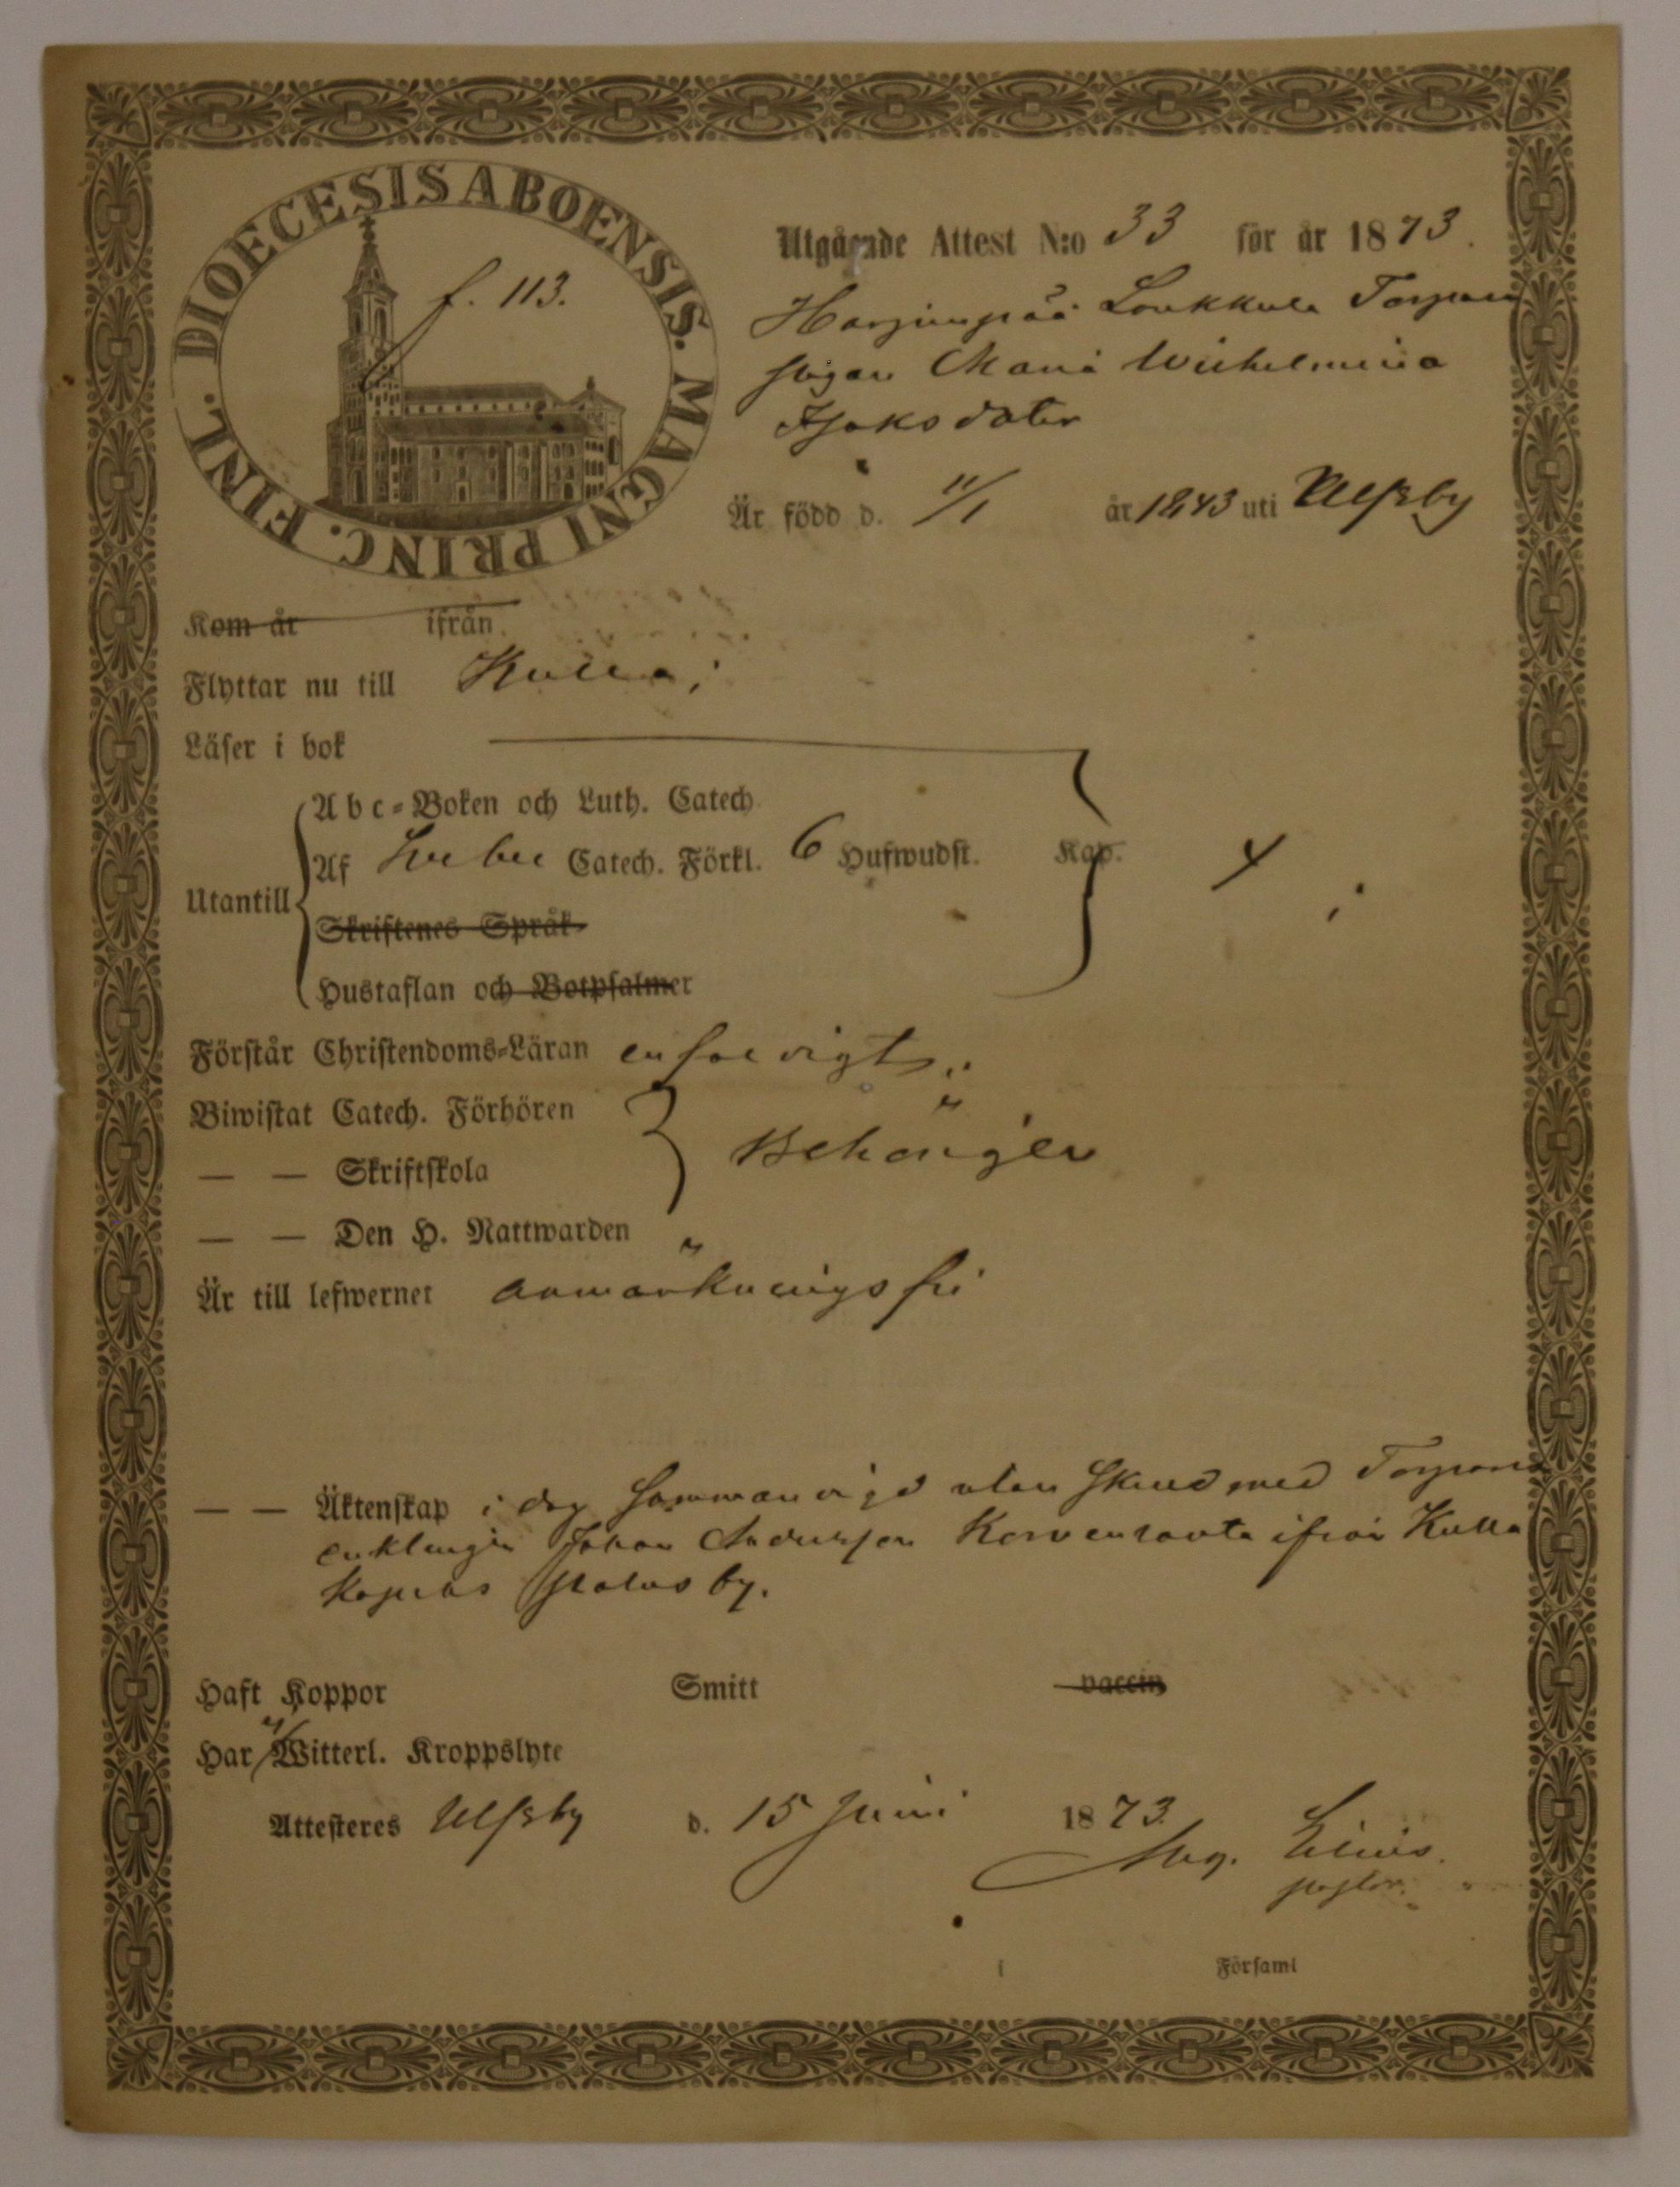 DIOECESIS ABOENSIS. MAGNI PRINC. FINL.
f. 113.
Utgående Attest N:o 33 för år 1873.
Harjunpää Loukkula Torpare
pigan Maria Wilhelmina
Isaksdoter
Är född d. 11/1 år 1843 uti Ulfsby
Kom år ifrån
Flyttar nu till Kulla;
Läser i bok
Abc-Boken och Luth. Catech.
Utantill
Af Svebei Catech. Förkl. 6 Hufwudst. Kap.
Skriftenes Språk
Hustaflan och Botpsalmer
Förstår Christendoms-Läran enfaldigt
Biwistat Catech. Förhören
— — Skriftskola
Behörigen
— — Den H. Nattwarden
Är till lefwernet anmärkningsfri
— — Äktenskap i dag sammanvigd utan Skud med Torpare
enklingen Johan Andersson Korvenrauta ifrån Kulla
Kapells by.
Haft Koppor Smitt vaccin
Har ej Witterl. Kroppslyte
Attesteres Ulfsby d. 15 Juni 1873.
Aug.
pastor.
i Församl